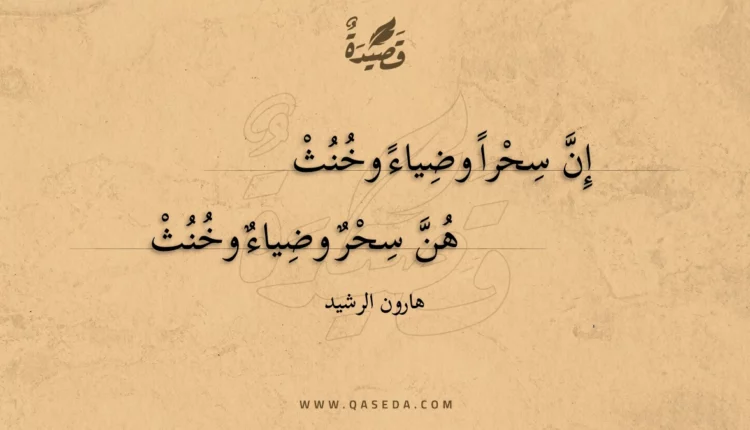 قَصِيْدَةٌ
إِنَّ سِحْراً وضِياءً وخُنُثْ
هُنَّ سِحْرٌ وضِياءٌ وخُنُثْ
هارون الرشيد
WWW.QASEDA.COM